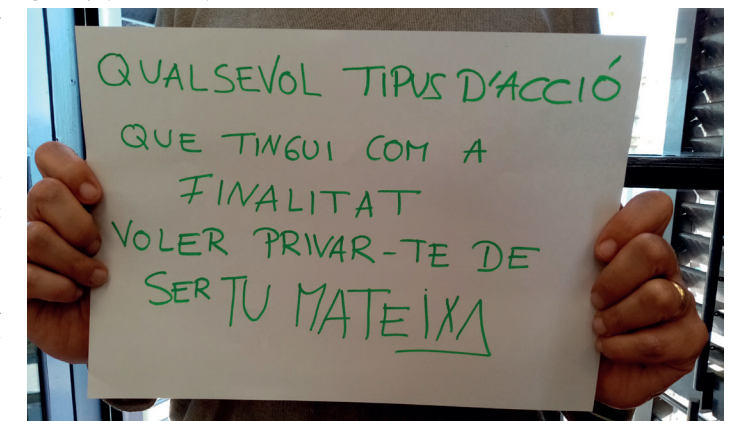 QUALSEVOL TIPUS D'ACCIÓ
QUE TINGUI COM A
FINALITAT
VOLER PRIVAR-TE DE
SER TU MATEIXA